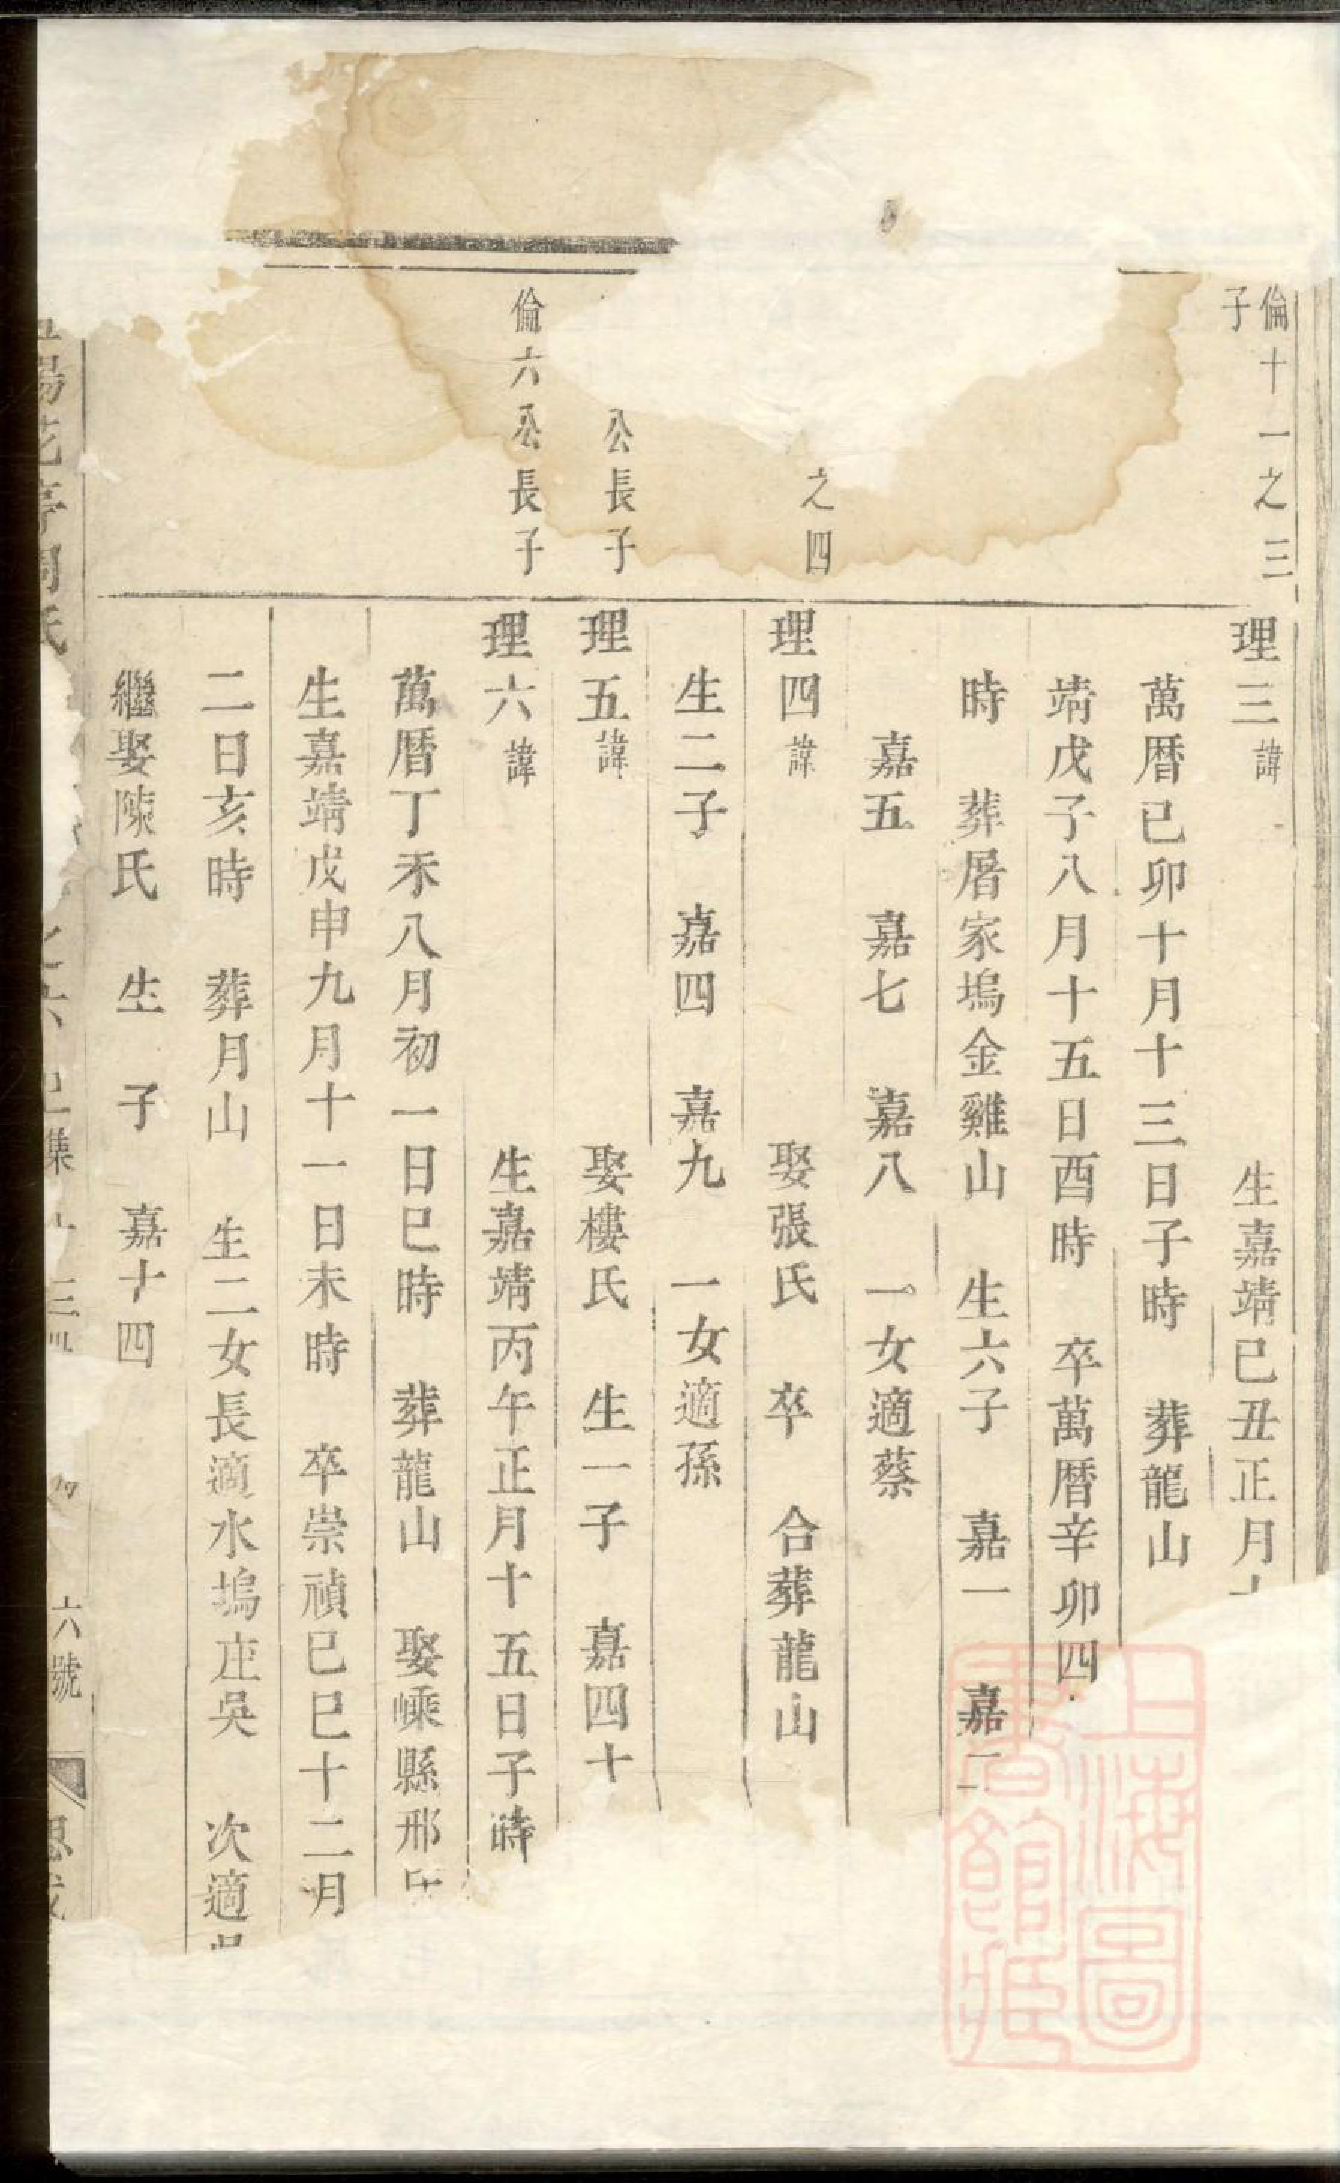 倫十一之三
子
理三諱 生嘉靖巳丑正月
萬曆己卯十月十三日子時 葬龍山
靖戊子八月十五日酉時 卒萬曆辛卯四
時 葬屠家塢金雞山 生六子 嘉一 嘉二
嘉五 嘉七 嘉八 一女適蔡
之四
理四諱 娶張氏 卒 合葬龍山
生二子 嘉四 嘉九 一女適孫
公長子
理五諱 娶樓氏 生一子 嘉四十
倫六公長子
理六諱 生嘉靖丙午正月十五日子時
萬曆丁未八月初一日巳時 葬龍山 娶嵊縣邢氏
生嘉靖戊申九月十一日未時 卒崇禎巳巳十二月
二日亥時 葬月山 生二女長適水塢庄吳 次適
繼娶陳氏 生 子 嘉十四
六號
上海圖
書館藏